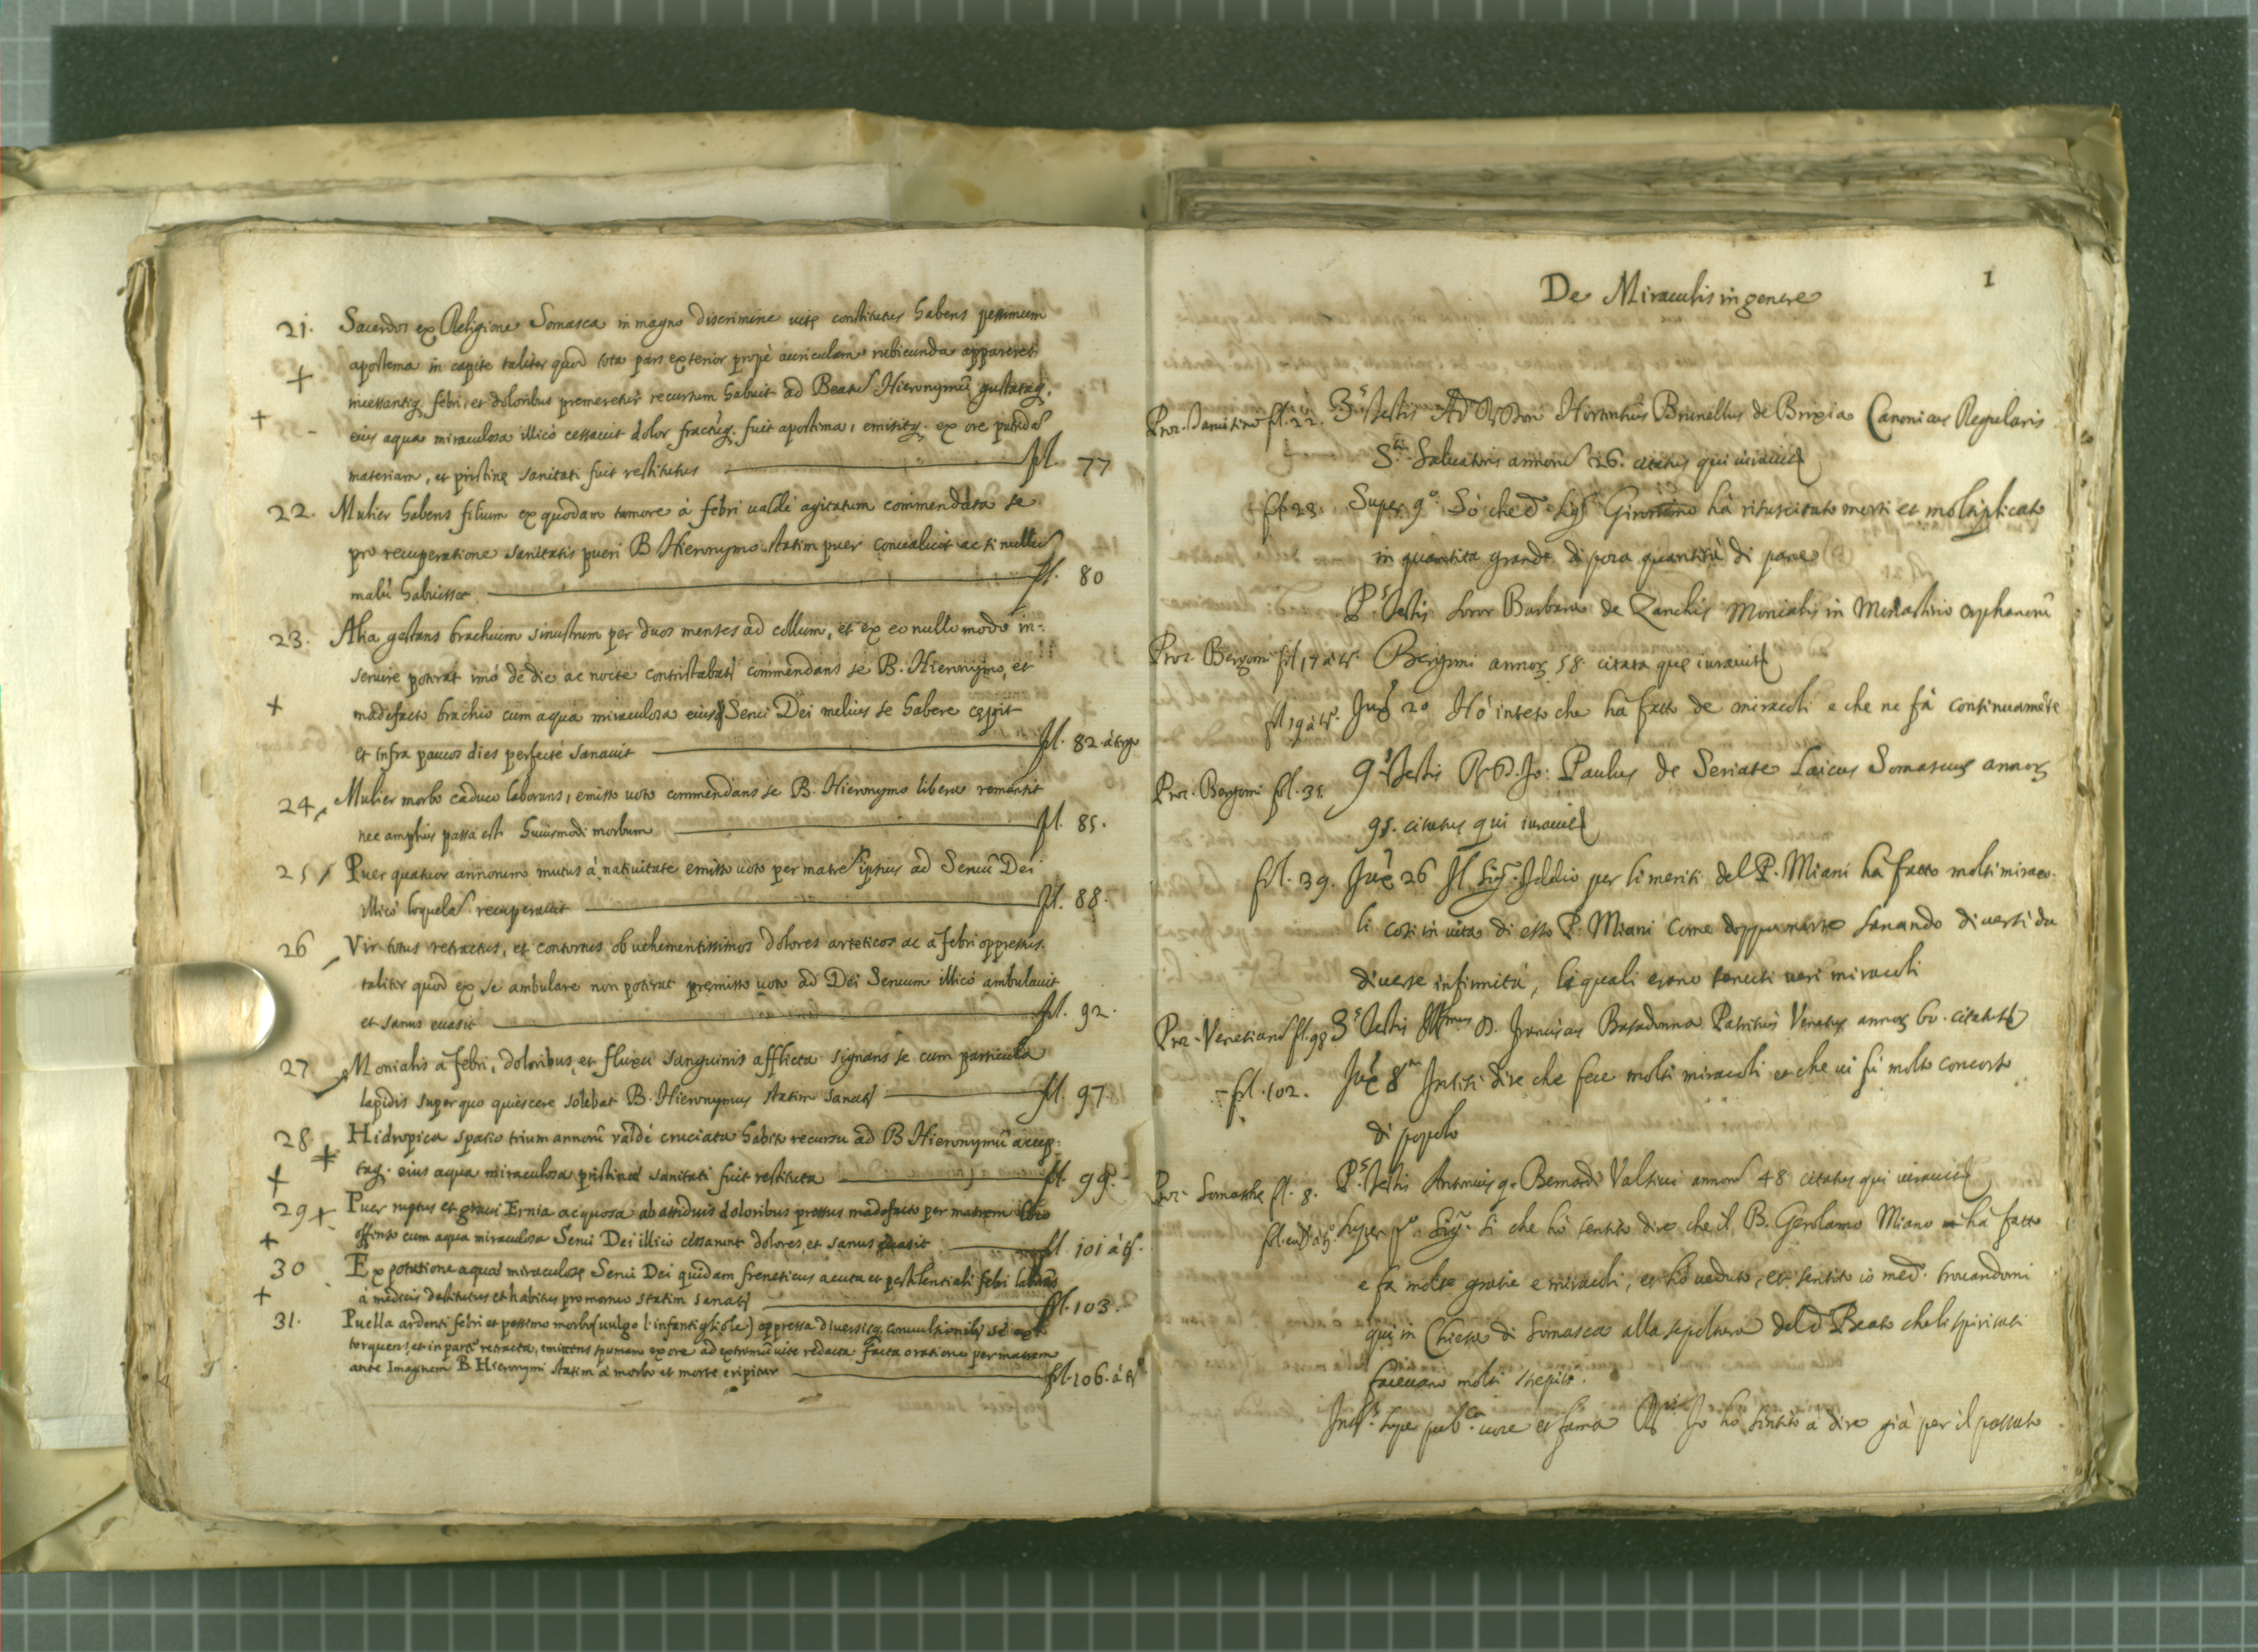 21. Sacerdos ex Religione Somasca in magno discrimine uitę constitutus habens pessimum
apostema in capite taliter quod tota pars exterior propè auriculam rubicunda appareret
incessantiq. febri, et doloribus premeretur recursum habuit ad Beatu Hieronymū gustataq.
eius aqua miraculosa illicò cessauit dolor fractūq. fuit apostima, emisitq. ex ore putridā
materiam, et pristinę sanitati fuit restitutus fol. 77
22. Mulier habens filium ex quodam tumore à febri ualdè agitatum commendata se
pro recuperatione sanitatis pueri B Hieronymo statim puer conualuit ac si nullū
malū habuisset fol. 80
23. Alia gestans brachium sinistrum per duos menses ad collum, et ex eo nullo modo in-
seruire poterat imò de die ac nocte contristabat commendans se B. Hieronymo, et
madefacto brachio cum aqua miraculosa eius Serui Dei melius se habere cępit
et infra paucos dies perfectè sanauit fol. 82. à tergo
24. Mulier morbo caduco laborans, emisso uoto commendans se B. Hieronymo libera remansit
nec amplius passa est huiusmodi morbum fol. 85.
25 Puer quatuor annorum mutus à natiuitate emisso uoto per matrē ipsius ad Seruū Dei
illicò loquelā recuperauit fol. 88.
26 Vir totus retractus, et contortus ob uehementissimos dolores arteticos ac à febri oppressus
taliter quod ex se ambulare non poterat pręmisso uoto ad Dei Seruum illicò ambulauit
et sanus euasit fol. 92.
27 Monialis à febri, doloribus, et fluxu sanguinis afflicta signans se cum particula
lapidis super quo quiescere solebat B. Hieronymus statim sanat fol. 97.
28 Hidropica spatio trium annorū valdè cruciata habito recursu ad B Hieronymū accep-
taq. eius aqua miraculosa pristinę sanitati fuit restituta fol. 99.
29 Puer ruptus et graui Ernia acquosa ab assiduis doloribus pressus madefacto per matrem loco
offenso cum aqua miraculosa Serui Dei illico cessarunt dolores, et sanus euasit fol 101 à tō.
30 Ex potatione aquę miraculosę Serui Dei quidam freneticus acuta et pestilentiali febri laborās
a medicis destitutus et habitus pro mortuo statim sanat fol. 103.
31. Puella ardenti febri et pessimo morbo (uulgo l'infantigliole) oppressa diuersisq. conuulsionib. se
torquens, et in parte retracta, emittens spumam ex ore ad extremū uitę redacta facta oratione per matrem
ante Imaginem B. Hieronymi statim à morbo et morte eripitur fol. 106. à tō
De Miraculis in genere 1
fol. 22. 3.s Testis Hortentius Brunellus de Brixia Canonicus Regularis
S.ti Saluatoris annorū 26. citatus qui iurauit
fol. 23. Super 9.o Sò che d. Sig.r Girolamo hà risuscitato morti et moltiplicato
in quantita grande di poca quantità di pane
P.s Testis Soror Barbara de Zanchis Monialis in Monasterio orphanorū
Proc. Bergomi fol 17 à tō. Bergomi annorū 58. citata quę iurauit
fol 19 à tō. 20 Hò inteso che hà fatto de miracoli e che ne fà continuamēte
Proc. Bergomi fol. 35. 9.s Testis Jo: Paulus de Seriate Laicus Somascus annorū
98. citatus qui iurauit
fol. 39. 26 Il Sig.r Iddio per li meriti del P. Miani hà fatto molti miraco-
li cosi in uita di esso P. Miani come doppo morte sanando diuersi da
diuerse infirmità, li quali erano tenuti ueri miracoli
Proc. Venetiarū fol. 98 3.s Testis D. Franciscus Basadonna Patritius Venetus annorū 60. citatus
fol. 102. 8 Intesi dire che fece molti miracoli et che ui fù molto concorso
di popolo
Proc. Somaschę fol. 8. P.s Testis Antonius q. Bernardi Valsiui annorū 48 citatus qui iurauit
Super Sig.r Si che hò sentito dire che il B. Gerolamo Miano hà fatto
e fa molte gratie e miracoli, et hò ueduto, et sentito io med. trouandomi
qui in Chiesa di Somasca alla sepoltura del d. Beato che li spiritati
faceuano molti strepiti.
super pub.ca uoce et fama Io hò sentito à dire già per il passato